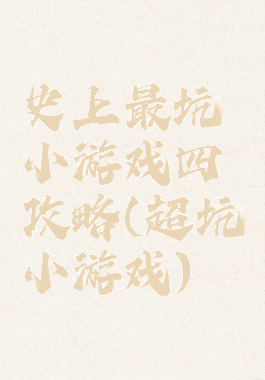 史上最坑
小游戏四
攻略(超坑
小游戏)